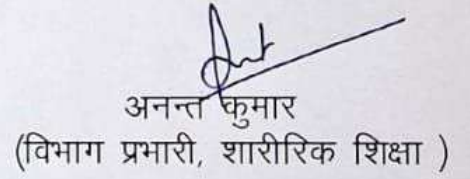 अनन्त कुमार
(विभाग प्रभारी, शारीरिक शिक्षा )